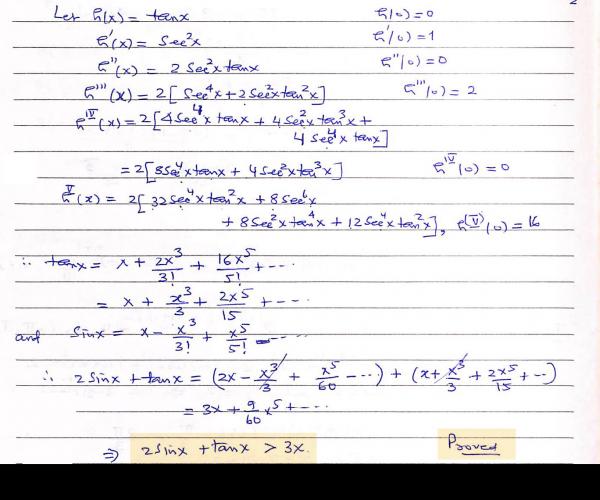 Let h(x) = tanx h(0) = 0
h'(x) = Sec²x h'(0) = 1
h''(x) = 2 Sec²x tanx h''(0) = 0
h'''(x) = 2[Sec⁴x + 2Sec²x tan²x] h'''(0) = 2
h^IV(x) = 2[4Sec⁴x tanx + 4Sec²x tan³x +
4 Sec⁴x tanx]
= 2[8Sec⁴x tanx + 4Sec²x tan³x] h^IV(0) = 0
h^V(x) = 2[32Sec⁴x tan²x + 8Sec⁶x
+ 8Sec²x tan⁴x + 12Sec⁴x tan²x], h^(V)(0) = 16
∴ tanx = x + 2x³/3! + 16x⁵/5! + ----
= x + x³/3 + 2x⁵/15 + ---
and Sinx = x - x³/3! + x⁵/5! - -----
∴ 2Sinx + tanx = (2x - x³/3 + x⁵/60 - ---) + (x + x³/3 + 2x⁵/15 + --)
= 3x + 9/60 x⁵ + ----
⇒ 2Sinx + tanx > 3x. Proved